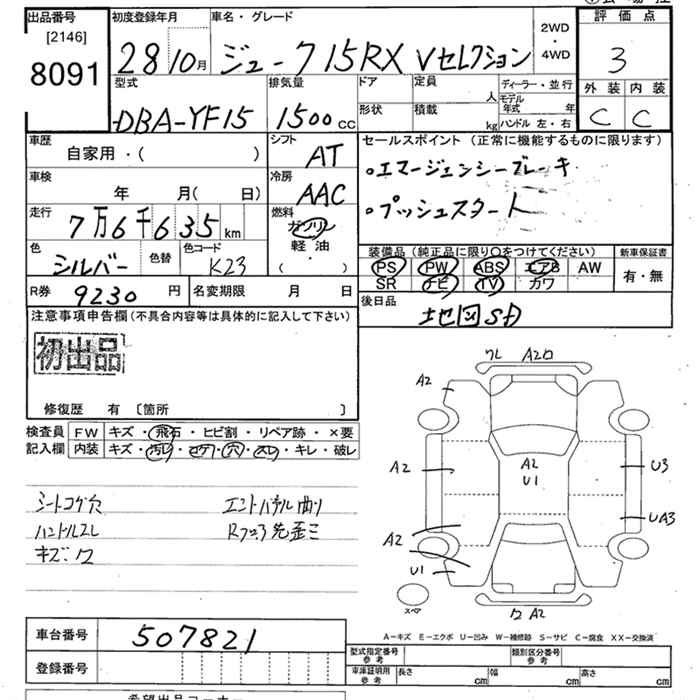 出品番号 初度登録年月 車名・グレード 評価点
[2146]
8091 28 10月 ジューク 15RX Vセレクション 2WD・4WD 3
型式 排気量 ドア 定員 人 ディーラー・並行 外装 内装
DBA-YF15 1500cc 形状 積載 kg モデル年式 年 ハンドル 左・右 C C
車歴 シフト セールスポイント(正常に機能するものに限ります)
自家用・( ) AT ・エマージェンシーブレーキ
車検 冷房
年 月( 日) AAC ・プッシュスタート
走行 燃料
7万6千635km ガソリン
色 色替 色コード 軽油 装備品(純正品に限り〇をつけてください) 新車保証書
シルバー K23 ( ) PS PW ABS エアB AW 有・無
R券 9230円 名変期限 月 日 SR ナビ TV カワ
後日品
注意事項申告欄(不具合内容等は具体的に記入して下さい) 地図SD
初出品
修復歴 有 〔箇所 〕
検査員 FW キズ・飛石・ヒビ割・リペア跡・×要
記入欄 内装 キズ・汚レ・コゲ・穴・スレ・キレ・破レ
シートコゲ穴
ハンドルスレ
キズ・ワ
ワレ A2
A2
A2 A2 U3
U1
UA3
A2
U1
スペア
ワ A2
A-キズ E-エクボ U-凹み W-補修跡 S-サビ C-腐食 XX-交換済
車台番号 507821
登録番号
型式指定番号 参考 類別区分番号 参考
車庫証明用 参考 長さ cm 幅 cm 高さ cm
希望出品コーナー